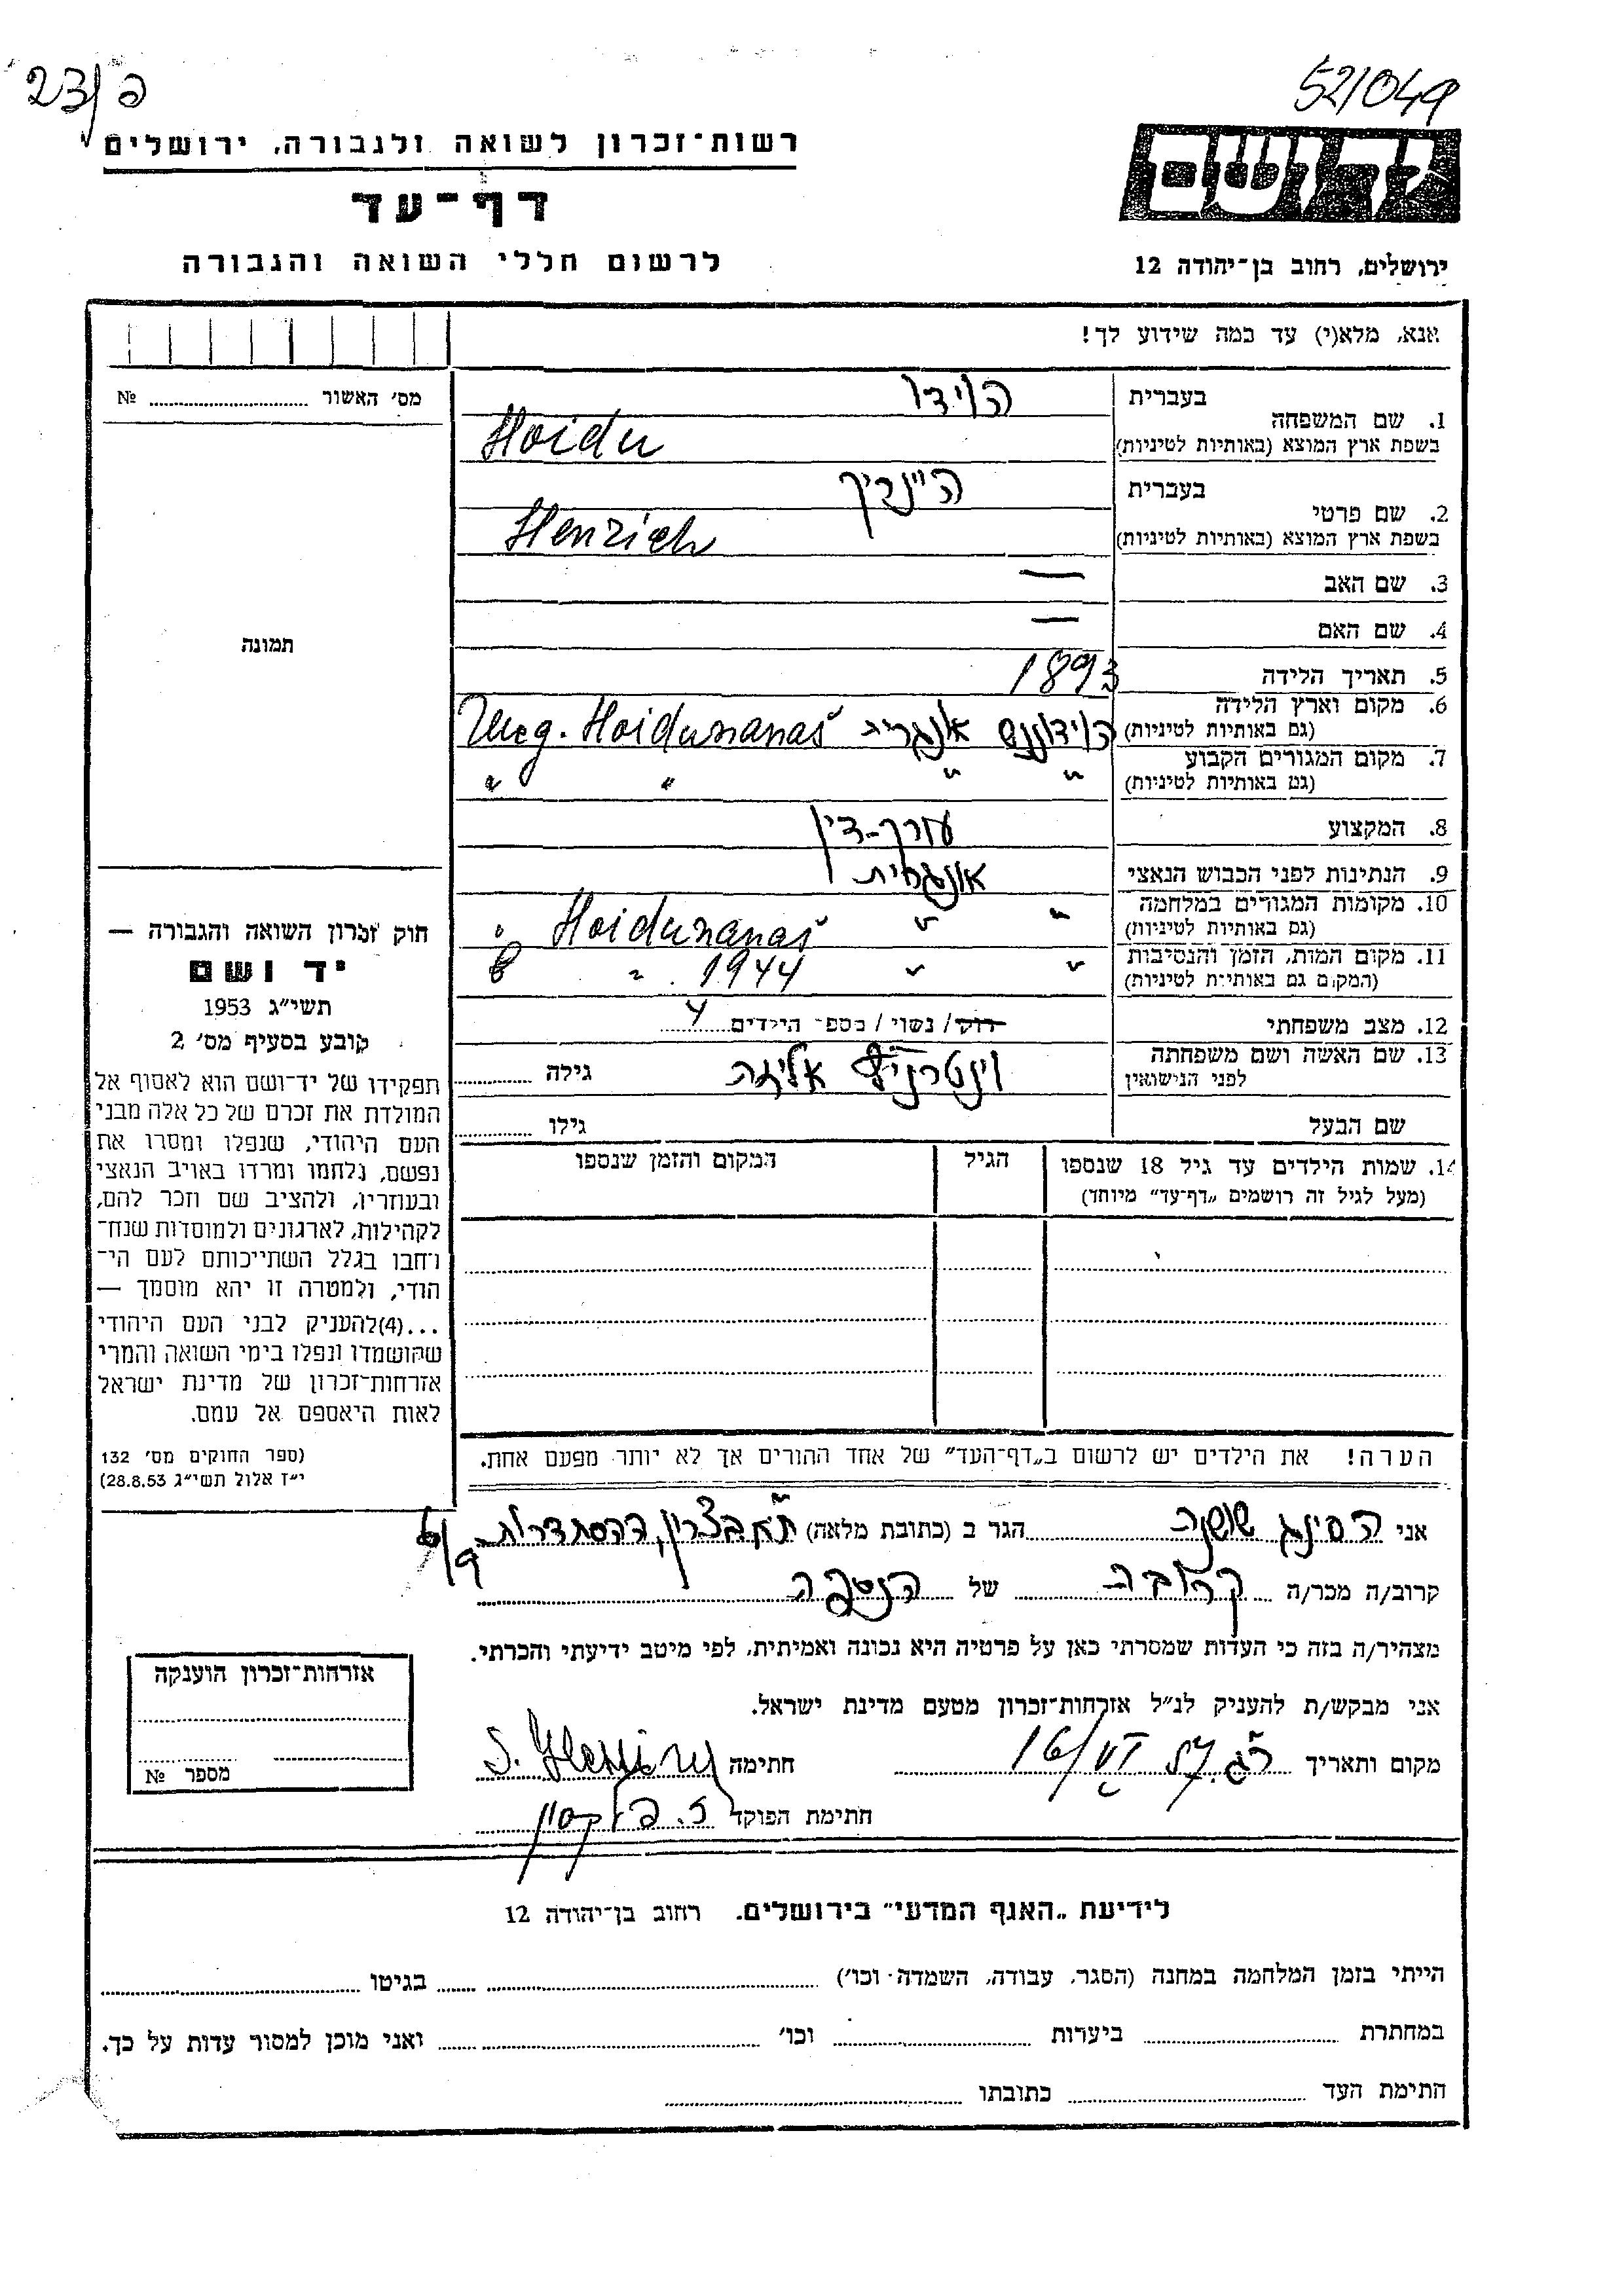 23/פ
52/049
רשות-זכרון לשואה ולגבורה, ירושלים
דף-עד
לרשום חללי השואה והגבורה
יד ושם
ירושלים, רחוב בן-יהודה 12
אנא, מלא(י) עד כמה שידוע לך!
מס׳ האשור № ..........
תמונה
חוק זכרון השואה והגבורה —
יד ושם
תשי״ג 1953
קובע בסעיף מס׳ 2
תפקידו של יד-ושם הוא לאסוף אל
המולדת את זכרם של כל אלה מבני
העם היהודי, שנפלו ומסרו את
נפשם, נלחמו ומרדו באויב הנאצי
ובעוזריו, ולהציב שם וזכר להם,
לקהילות, לארגונים ולמוסדות שנח-
רחבו בגלל השתייכותם לעם הי-
הודי, ולמטרה זו יהא מוסמך —
...(4) להעניק לבני העם היהודי
שהושמדו ונפלו בימי השואה והמרי
אזרחות-זכרון של מדינת ישראל
לאות היאספם אל עמם.
(ספר החוקים מס׳ 132
י״ז אלול תשי״ג 28.8.53)
1. שם המשפחה
בעברית הוידו
בשפת ארץ המוצא (באותיות לטיניות) Hoidu
2. שם פרטי
בעברית היינריך
בשפת ארץ המוצא (באותיות לטיניות) Henrich
3. שם האב —
4. שם האם —
5. תאריך הלידה 1893
6. מקום וארץ הלידה
(גם באותיות לטיניות) הוידוננש אנגריה Ung. Hoidunanaš
7. מקום המגורים הקבוע
(גם באותיות לטיניות) " " " "
8. המקצוע עורך-דין
9. הנתינות לפני הכבוש הנאצי אונגרית
10. מקומות המגורים במלחמה
(גם באותיות לטיניות) " " Hoidunanaš "
11. מקום המות, הזמן והנסיבות
(המקום גם באותיות לטיניות) " " 1944 "
12. מצב משפחתי רווק / נשוי / מספר הילדים 4
13. שם האשה ושם משפחתה
לפני הנישואין אליזה גילה ..........
שם הבעל גילו ..........
14. שמות הילדים עד גיל 18 שנספו
(מעל לגיל זה רושמים „דף-עד״ מיוחד)
הגיל
המקום והזמן שנספו
הערה! את הילדים יש לרשום ב„דף-העד״ של אחד ההורים אך לא יותר מפעם אחת.
אני הסינג שושנה הגר ב (כתובת מלאה) ת״א בצרון, ההסתדרות
6/9
קרוב/ה מכר/ה קרובה של הנספה
מצהיר/ה בזה כי העדות שמסרתי כאן על פרטיה היא נכונה ואמיתית, לפי מיטב ידיעתי והכרתי.
אני מבקש/ת להעניק לנ״ל אזרחות-זכרון מטעם מדינת ישראל.
מקום ותאריך ר״ג 16/VI 57 חתימה
חתימת הפוקד
אזרחות-זכרון הוענקה
מספר №
לידיעת „האגף המדעי״ בירושלים. רחוב בן-יהודה 12
הייתי בזמן המלחמה במחנה (הסגר, עבודה, השמדה וכו׳) .......... בגיטו ..........
במחתרת .......... ביערות .......... וכו׳ .......... ואני מוכן למסור עדות על כך.
חתימת העד .......... כתובתו ..........